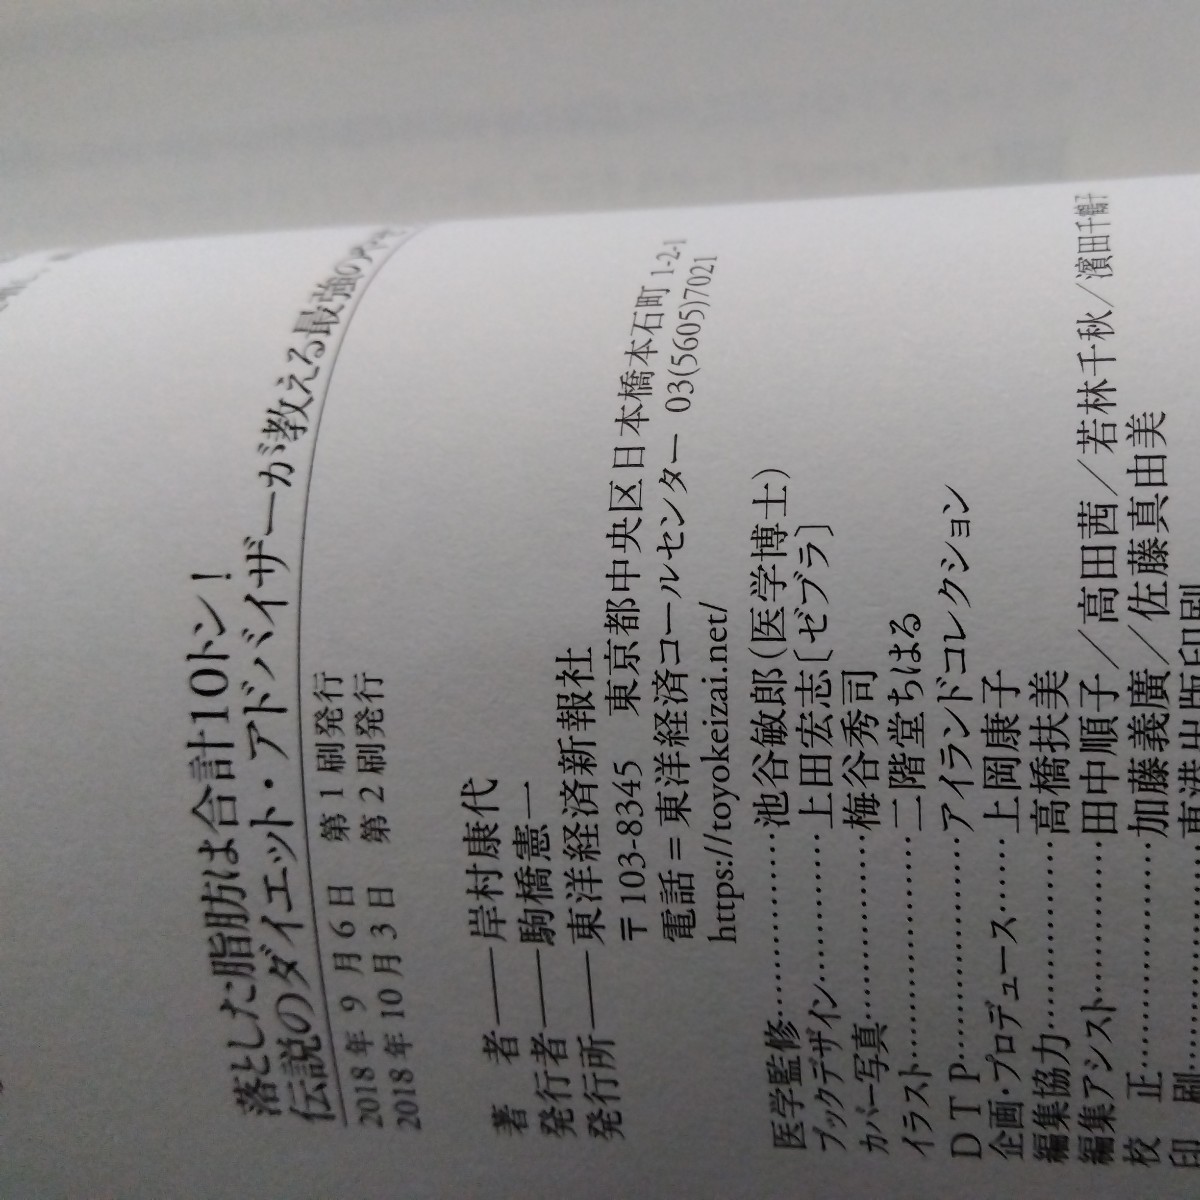 落とした脂肪は合計10トン！
伝説のダイエット・アドバイザーが教える最強のやせ
2018年 9 月 6 日　第 1 刷発行
2018年 10 月 3 日　第 2 刷発行
著　者――岸村康代
発行者――駒橋憲一
発行所――東洋経済新報社
〒103-8345　東京都中央区日本橋本石町 1-2-1
電話＝東洋経済コールセンター　03(5605)7021
https://toyokeizai.net/
医学監修…………池谷敏郎（医学博士）
ブックデザイン…………上田宏志〔ゼブラ〕
カバー写真…………梅谷秀司
イラスト…………二階堂ちはる
ＤＴＰ…………アイランドコレクション
企画・プロデュース……上岡康子
編集協力…………高橋扶美
編集アシスト…………田中順子／高田茜／若林千秋／濱田千鶴子
校　正…………加藤義廣／佐藤真由美
印　刷…………東港出版印刷